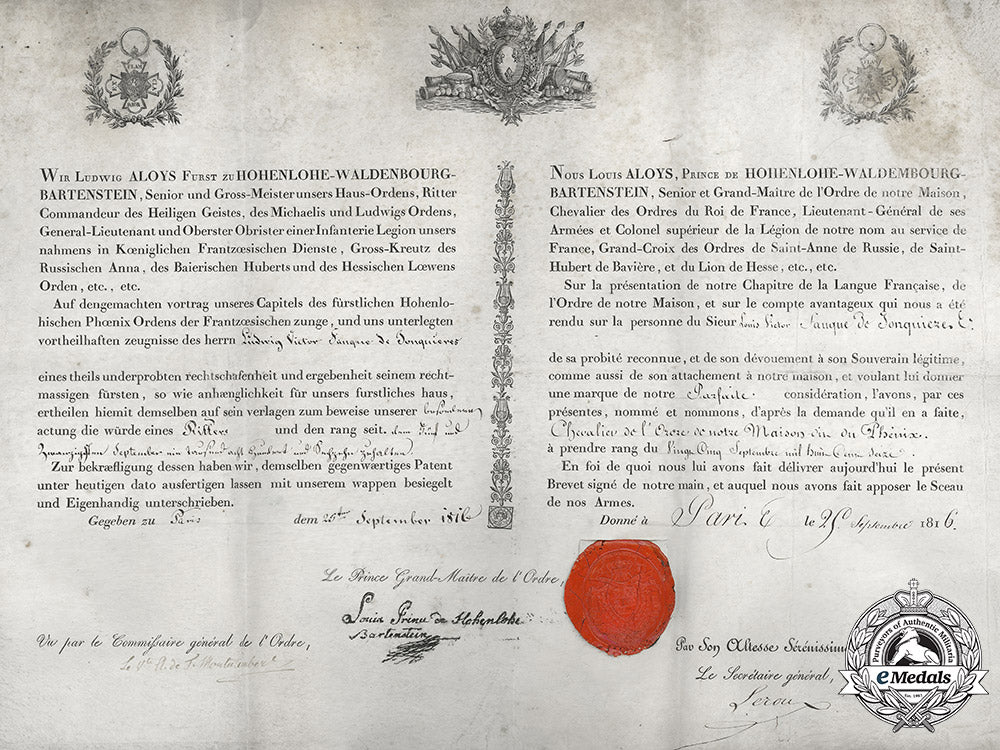 WIR LUDWIG ALOYS FURST ZU HOHENLOHE-WALDENBOURG-
BARTENSTEIN, Senior und Gross-Meister unsers Haus-Ordens, Ritter
Commandeur des Heiligen Geistes, des Michaelis und Ludwigs Ordens,
General-Lieutenant und Oberster Obrister einer Infanterie Legion unsers
nahmens in Kœniglichen Frantzœsischen Dienste, Gross-Kreutz des
Russischen Anna, des Baierischen Huberts und des Hessischen Lœwens
Orden, etc., etc.
Auf dengemachten vortrag unseres Capitels des fürstlichen Hohenlo-
hischen Phœnix Ordens der Frantzœsischen zunge, und uns unterlegten
vortheilhaften zeugnisse des herrn Ludwig Victor Fauque de Jonquieres
eines theils underprobten rechtschafenheit und ergebenheit seinem recht-
massigen fürsten, so wie anhænglichkeit für unsers furstliches haus,
ertheilen hiemit demselben auf sein verlagen zum beweise unserer besonderen
actung die würde eines Ritters und den rang seit. dem fünf und
Zwanzigsten September ein tausend acht hundert und Sechzehn
Zur bekræfligung dessen haben wir, demselben gegenwærtiges Patent
unter heutigen dato ausfertigen lassen mit unserem wappen besiegelt
und Eigenhandig unterschrieben.
Gegeben zu Paris dem 25ten September 1816
NOUS LOUIS ALOYS, PRINCE DE HOHENLOHE-WALDEMBOURG-
BARTENSTEIN, Senior et Grand-Maître de l'Ordre de notre Maison,
Chevalier des Ordres du Roi de France, Lieutenant-Général de ses
Armées et Colonel supérieur de la Légion de notre nom au service de
France, Grand-Croix des Ordres de Saint-Anne de Russie, de Saint-
Hubert de Bavière, et du Lion de Hesse, etc., etc.
Sur la présentation de notre Chapitre de la Langue Française, de
l'Ordre de notre Maison, et sur le compte avantageux qui nous a été
rendu sur la personne du Sieur Louis Victor Fauque de Jonquieres
de sa probité reconnue, et de son dévouement à son Souverain légitime,
comme aussi de son attachement à notre maison, et voulant lui donner
une marque de notre Parfaite considération, l'avons, par ces
présentes, nommé et nommons, d'après la demande qu'il en a faite,
Chevalier de l'Ordre de notre Maison dit du Phénix.
à prendre rang du Vingt Cinq Septembre mil huit Cent Seize.
En foi de quoi nous lui avons fait délivrer aujourd'hui le présent
Brevet signé de notre main, et auquel nous avons fait apposer le Sceau
de nos Armes.
Donné à Paris le 25 Septembre 1816.
Le Prince Grand-Maitre de l'Ordre,
Louis Prince de Hohenlohe
Bartenstein
Vu par le Commissaire général de l'Ordre,
Par Son Altesse Sérénissim
Le Secrétaire général,
Leroux
Purveyors of Authentic Militaria
eMedals